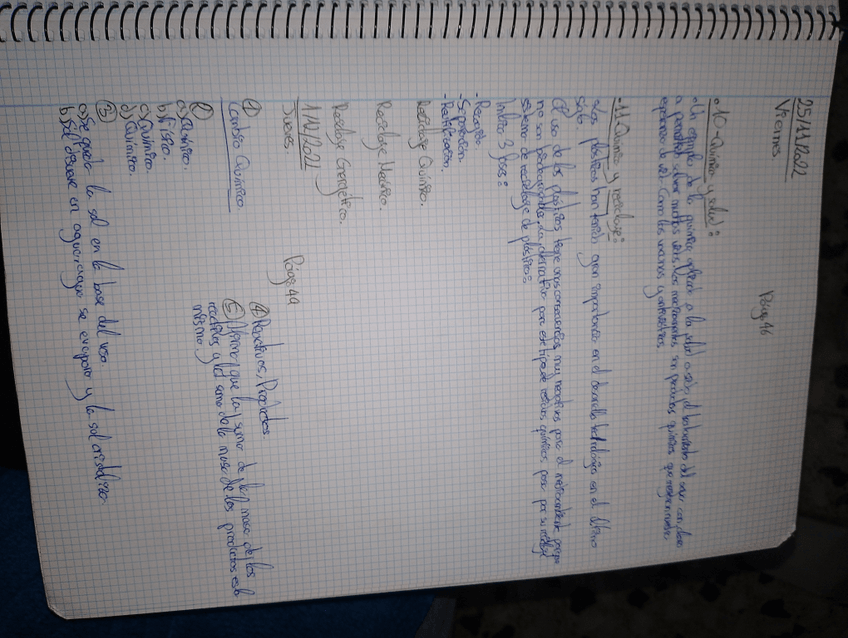 25/11/2022
Viernes
Pág.46
•10-Química y salud:
•Un ejemplo de la química aplicada a la salud
esperanza de vida. Como las vacunas y antivirales.
•11.Química y reciclaje:
•Los plásticos han tenido gran importancia en el desarrollo tecnológico en el último
siglo.
El uso de los plásticos tiene unas consecuencias muy negativas para el medioambiente, porque
no son biodegradables. La alternativa para este tipo de residuos químicos pasa por su
sistema de reciclaje de plástico:
3 fases:
-Recogida.
-Separación.
Reciclaje Químico.
Reciclaje Mecánico.
Reciclaje Energético.
1/12/2022
Jueves.
Pág.49
① Cambio Químico
②
a) Químico.
b) Físico.
c) Químico.
d) Químico.
③
a) Se queda la sal en la base del vaso
b) Sal disuelve en agua, agua se evapora y la sal cristaliza.
④ Reactivos, Productos
⑤ Afirma que la suma de la masa de los
reactivos y la suma de la masa de los productos es la
misma